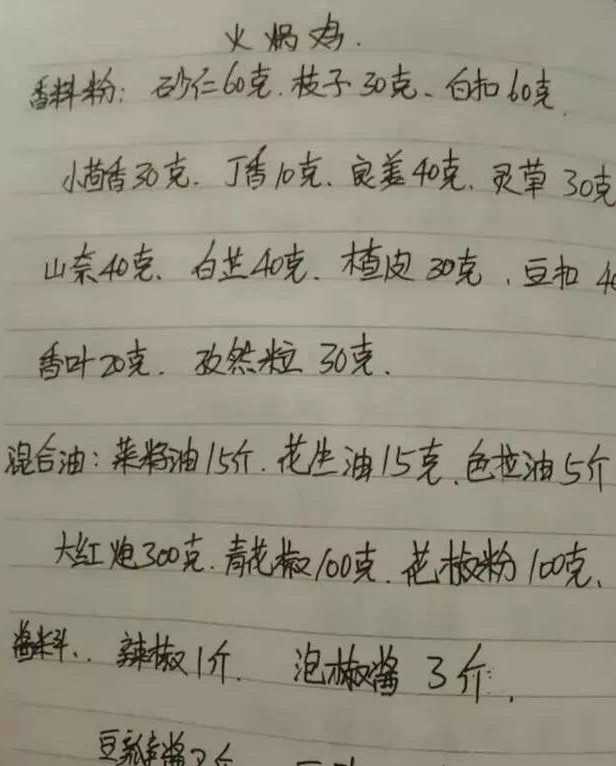 火焗鸡.
香料粉: 砂仁60克. 枝子30克、白扣60克.
小茴香30克. 丁香10克. 良姜40克. 灵草 30克
山奈40克. 白芷40克. 楂皮 30克, 豆扣 4
香叶20克. 孜然粒 30克.
混合油: 菜籽油15斤. 花生油15克. 色拉油5斤
大红炮300克. 青花椒100克. 花椒粉100克.
酱料: 辣椒1斤. 泡椒酱 3斤.
豆瓣酱2斤